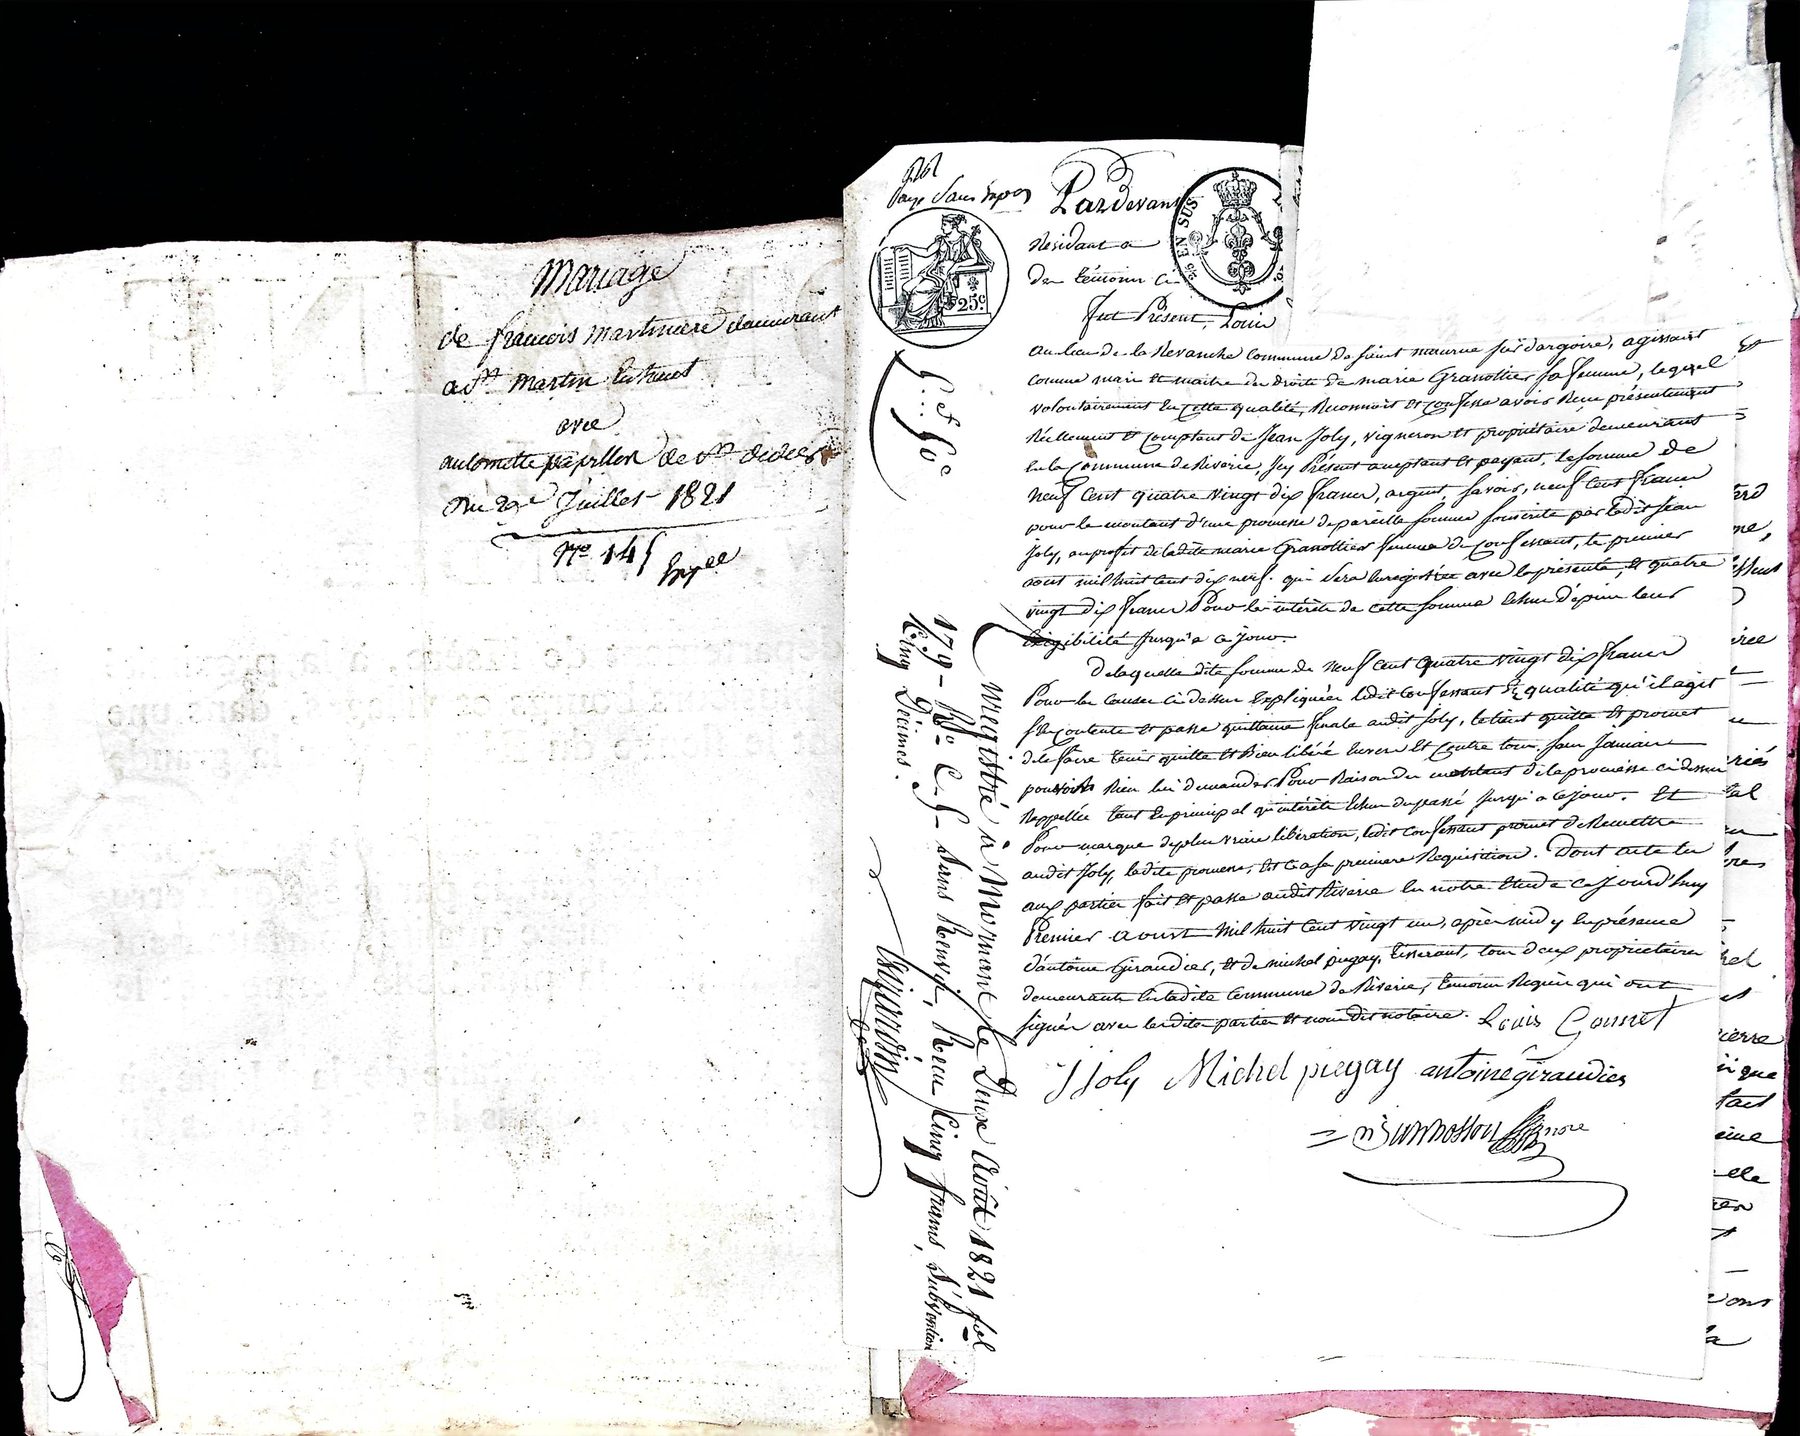 Mariage
de francois Martiniere demeurant
a St. Martin En haut
avec
antoinette papillon de St. didier
Du 29e Juillet 1821
No. 145
Expée
Pardevant
Residant a
de témoins ci
EN SUS
25c.
fut Présent, Louis
au lieu de la Revanche Commune de saint maurice sur dargoire, agissant
comme mari et maitre des droits de marie Granottier sa femme, lequel
volontairement En cette qualité, Reconnoit et Confesse avoir Reçu présentement
Réellement et Comptant de Jean Joly, vigneron et propriétaire demeurant
En la Commune de Riverie, Icy Présent acceptant et payant, la somme de
neuf Cent quatre vingt dix francs, argent, savoir, neuf Cent francs
pour le montant d'une promesse de pareille somme souscrite par ledit Jean
Joly, au profit de ladite marie Granottier femme du Confessant, le premier
aout mil huit Cent dix neuf. qui sera Enregistrée avec la présente, et quatre
vingt dix francs Pour les intérêts de cette somme Echus depuis leur
Exigibilité Jusqu'a ce Jour.
De laquelle dite somme de neuf Cent quatre vingt dix francs
Pour les Causes ci dessus Expliquées ledit Confessant En qualité qu'il agit
se Contente et passe quittance finale audit Joly, le tient quitte et promet
de le faire tenir quitte et Bien libéré Envers et Contre tous. sans Jamais
pouvoir Rien lui demander Pour Raison du montant de la promesse ci dessus
Rappellée tant En principal qu'intérêts Echus du passé Jusqu'a ce Jour. Et
Pour marque de plus vraie libération, ledit Confessant promet de Remettre
audit Joly, ladite promesse, Et Ce a sa premiere Requisition. Dont acte lu
aux parties fait et passé audit Riverie En notre Etude Ce Jourd'huy
Premier aoust Mil huit Cent vingt un, après midy En présence
d'antoine Giraudier, et de michel piegay, tisserant, tous deux propriétaires
demeurants En ladite Commune de Riverie, témoins Requis qui ont
signés avec lesdites parties et nous dit notaire. Louis Gonnet
J Joly Michel piegay antoine giraudier
Enregistré à Mornant le Deux Août 1821 fol
179 - Ro. C. 5 - sans Renvoi, Reçu Cinq francs, subvention
Cinq Décimes.